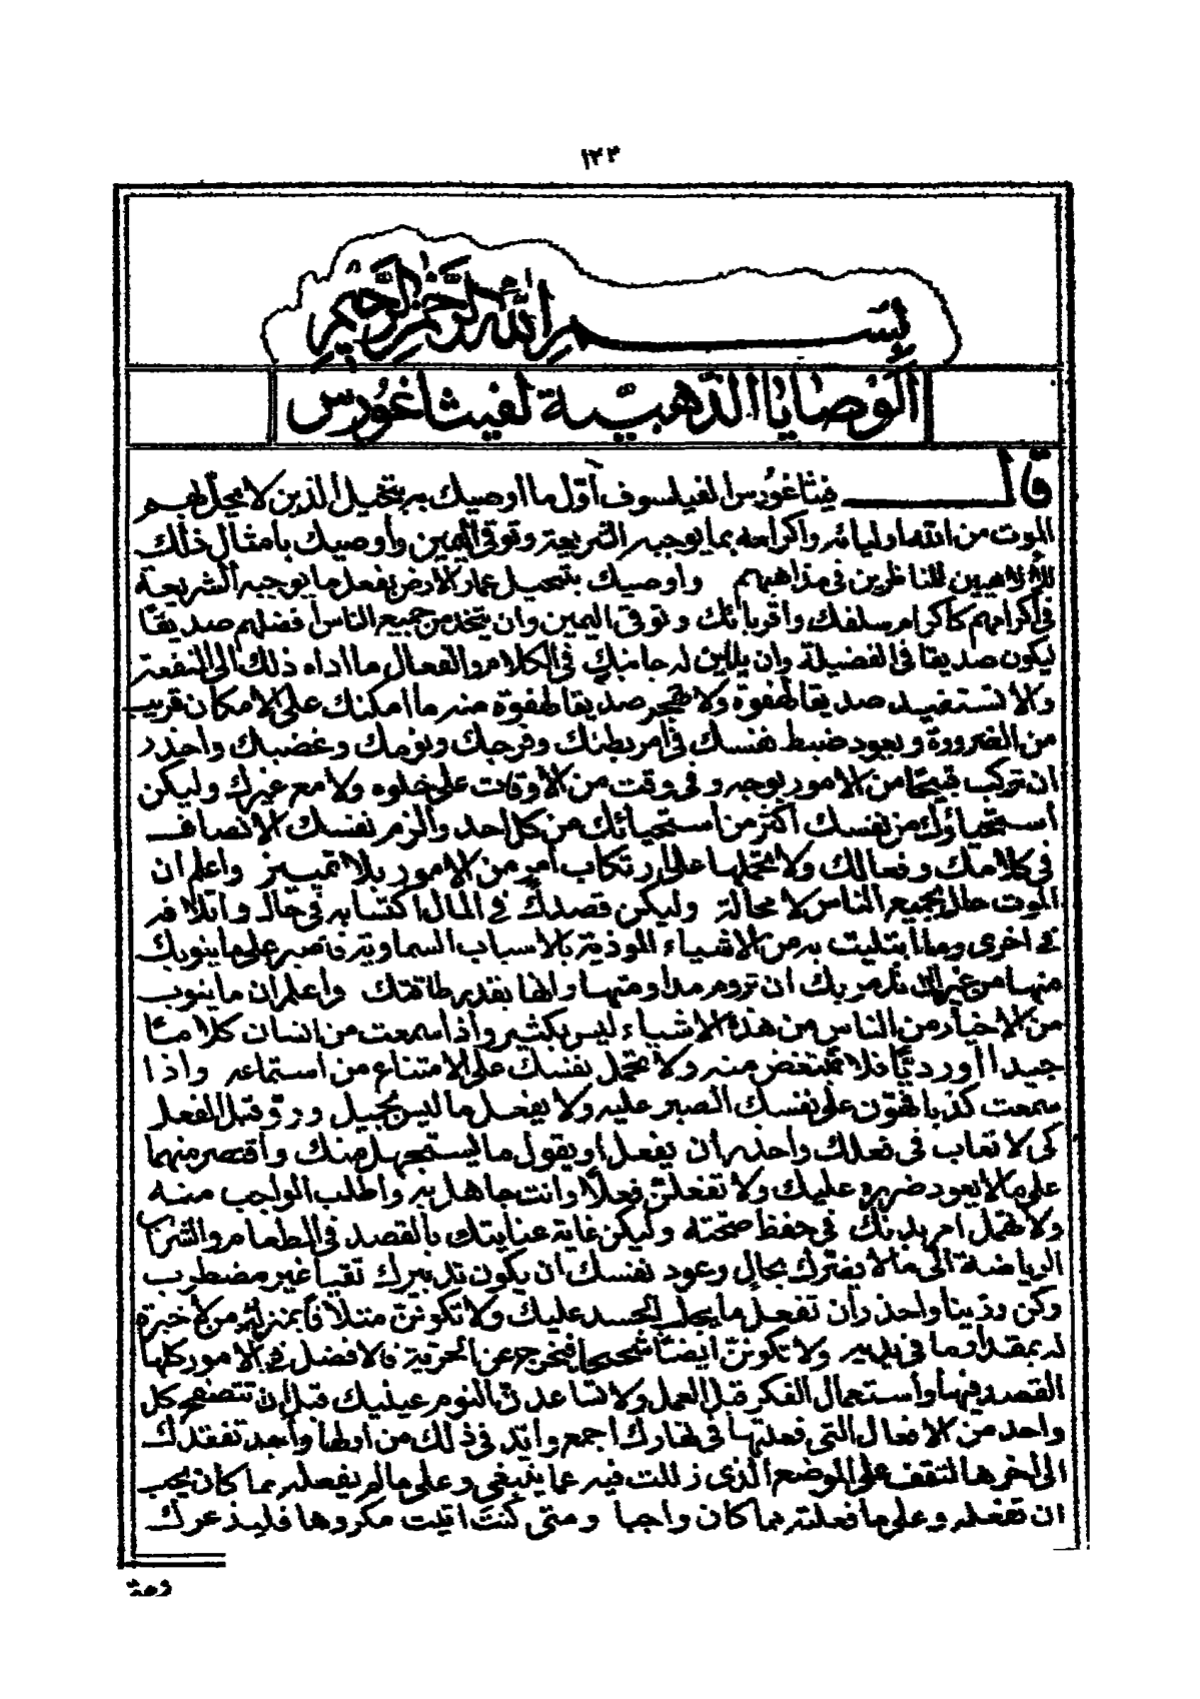 ١٢٣
بسم الله الرحمن الرحيم
الوصايا الذهبية لفيثاغورس
قال فيثاغورس الفيلسوف أول ما اوصيك به بتجيل الذين لا يحل بهم
الموت من الله واوليائه واكرامه بما يوجبه الشريعة وتوقى اليمين وأوصيك بامثال ذلك
للناظرين في مذاهبهم وأوصيك بتبجيل عمار الارض بفعل ما يوجبه الشريعة
في اكرامهم كاكرام سلفك واقربائك وتوقى اليمين وان يتخذ من جميع الناس أفضلهم صديقا
ليكون صديقا في الفضيلة وان يلين له جانبك في الكلام والفعال ما اداه ذلك الى المنفعة
والا تستفيد صديقا لهفوة ولا تهجر صديقا لهفوة منه ما امكنك على الامكان قريب
من الضرورة ويعود ضبط نفسك في امر بطنك وفرجك ونومك وغضبك واحذر
ان تركب قبيحا من الامور بوجه وفي وقت من الأوقات على خلوه ولا مع غيرك وليكن
أستحياؤك من نفسك اكثر من أستحيائك من كل احد والزم نفسك الانصاف
في كلامك وفعالك ولا تحملها على ارتكاب أمر من الامور بلا تمييز واعلم ان
الموت حال بجميع الناس لا محالة وليكن قصدك في المال اكتسابه في حال واتلافه
في اخرى وما ابتليت به من الاشياء الموذية بالاسباب السماوية فاصبر على ما ينوبك
منها من غير ان تذمر بك ان تروم مداومتها والها بقدر طاقتك واعلم ان ما ينوب
من الاخيار من الناس من هذه الاشياء ليس بكثير واذا سمعت من انسان كلاما
جيدا أو رديًا فلا تمتعض منه ولا تحمل نفسك على الامتناع من أستماعه واذا
سمعت كذبا فهون على نفسك الصبر عليه ولا يفعل ما ليس بجميل وروّ قبل الفعل
كى لا تعاب في فعلك واحذر أن يفعل أو يقول ما يستجهل منك واقتصر منهما
على ما لا يعود ضرره عليك ولا تفعلن فعلا وانت جاهل به واطلب الواجب منه
ولا تهمل امر بدنك في حفظ صحته وليكن غاية عنايتك بالقصد في الطعام والشراب
الرياضة الى ما لا يضرك بحال وعود نفسك ان يكون تدبيرك تقيا غير مضطرب
وكن رزينا واحذر أن تفعل ما يجلب الحسد عليك ولا تكونن متلافا بمنزلة من لا خبرة
له بمقدار ما في يديه ولا تكونن أيضا شحيحا فتخرج عن الحرية فالافضل في الامور كلها
القصد فيها وأستعمال الفكر قبل العمل ولا تساعدن النوم عينيك قبل أن تتصفح كل
واحد من الافعال التي فعلتها في نهارك اجمع وابد في ذلك من أولها وأجد تفقدك
الى اخرها لتقف على الموضع الذي زللت فيه عما ينبغي وعلى ما لم يفعله مما كان يجب
ان تفعله وعلى ما فعلته مما كان واجبا ومتى كنت اتيت مكروها فليذعرك